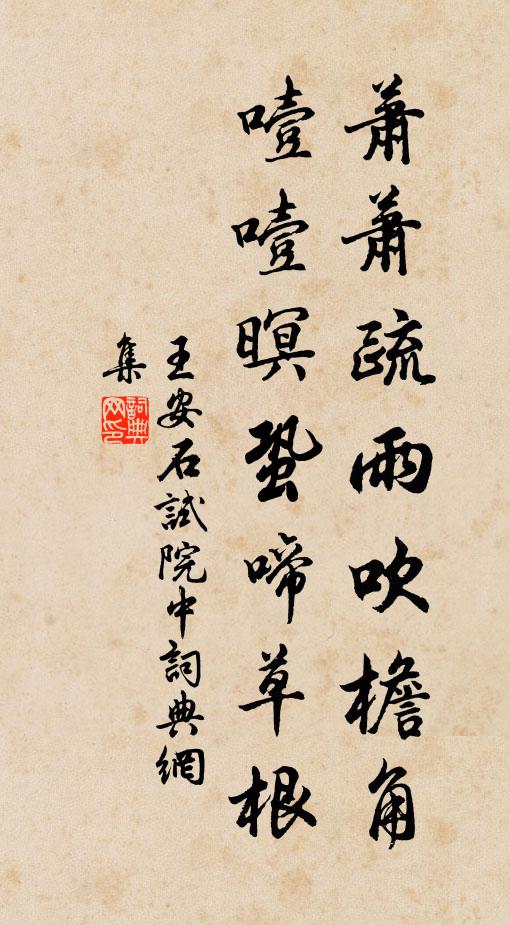 蕭蕭疏雨吹檐角
噎噎暝蛩啼草根
王安石試院中詞典網
集
詞典網印